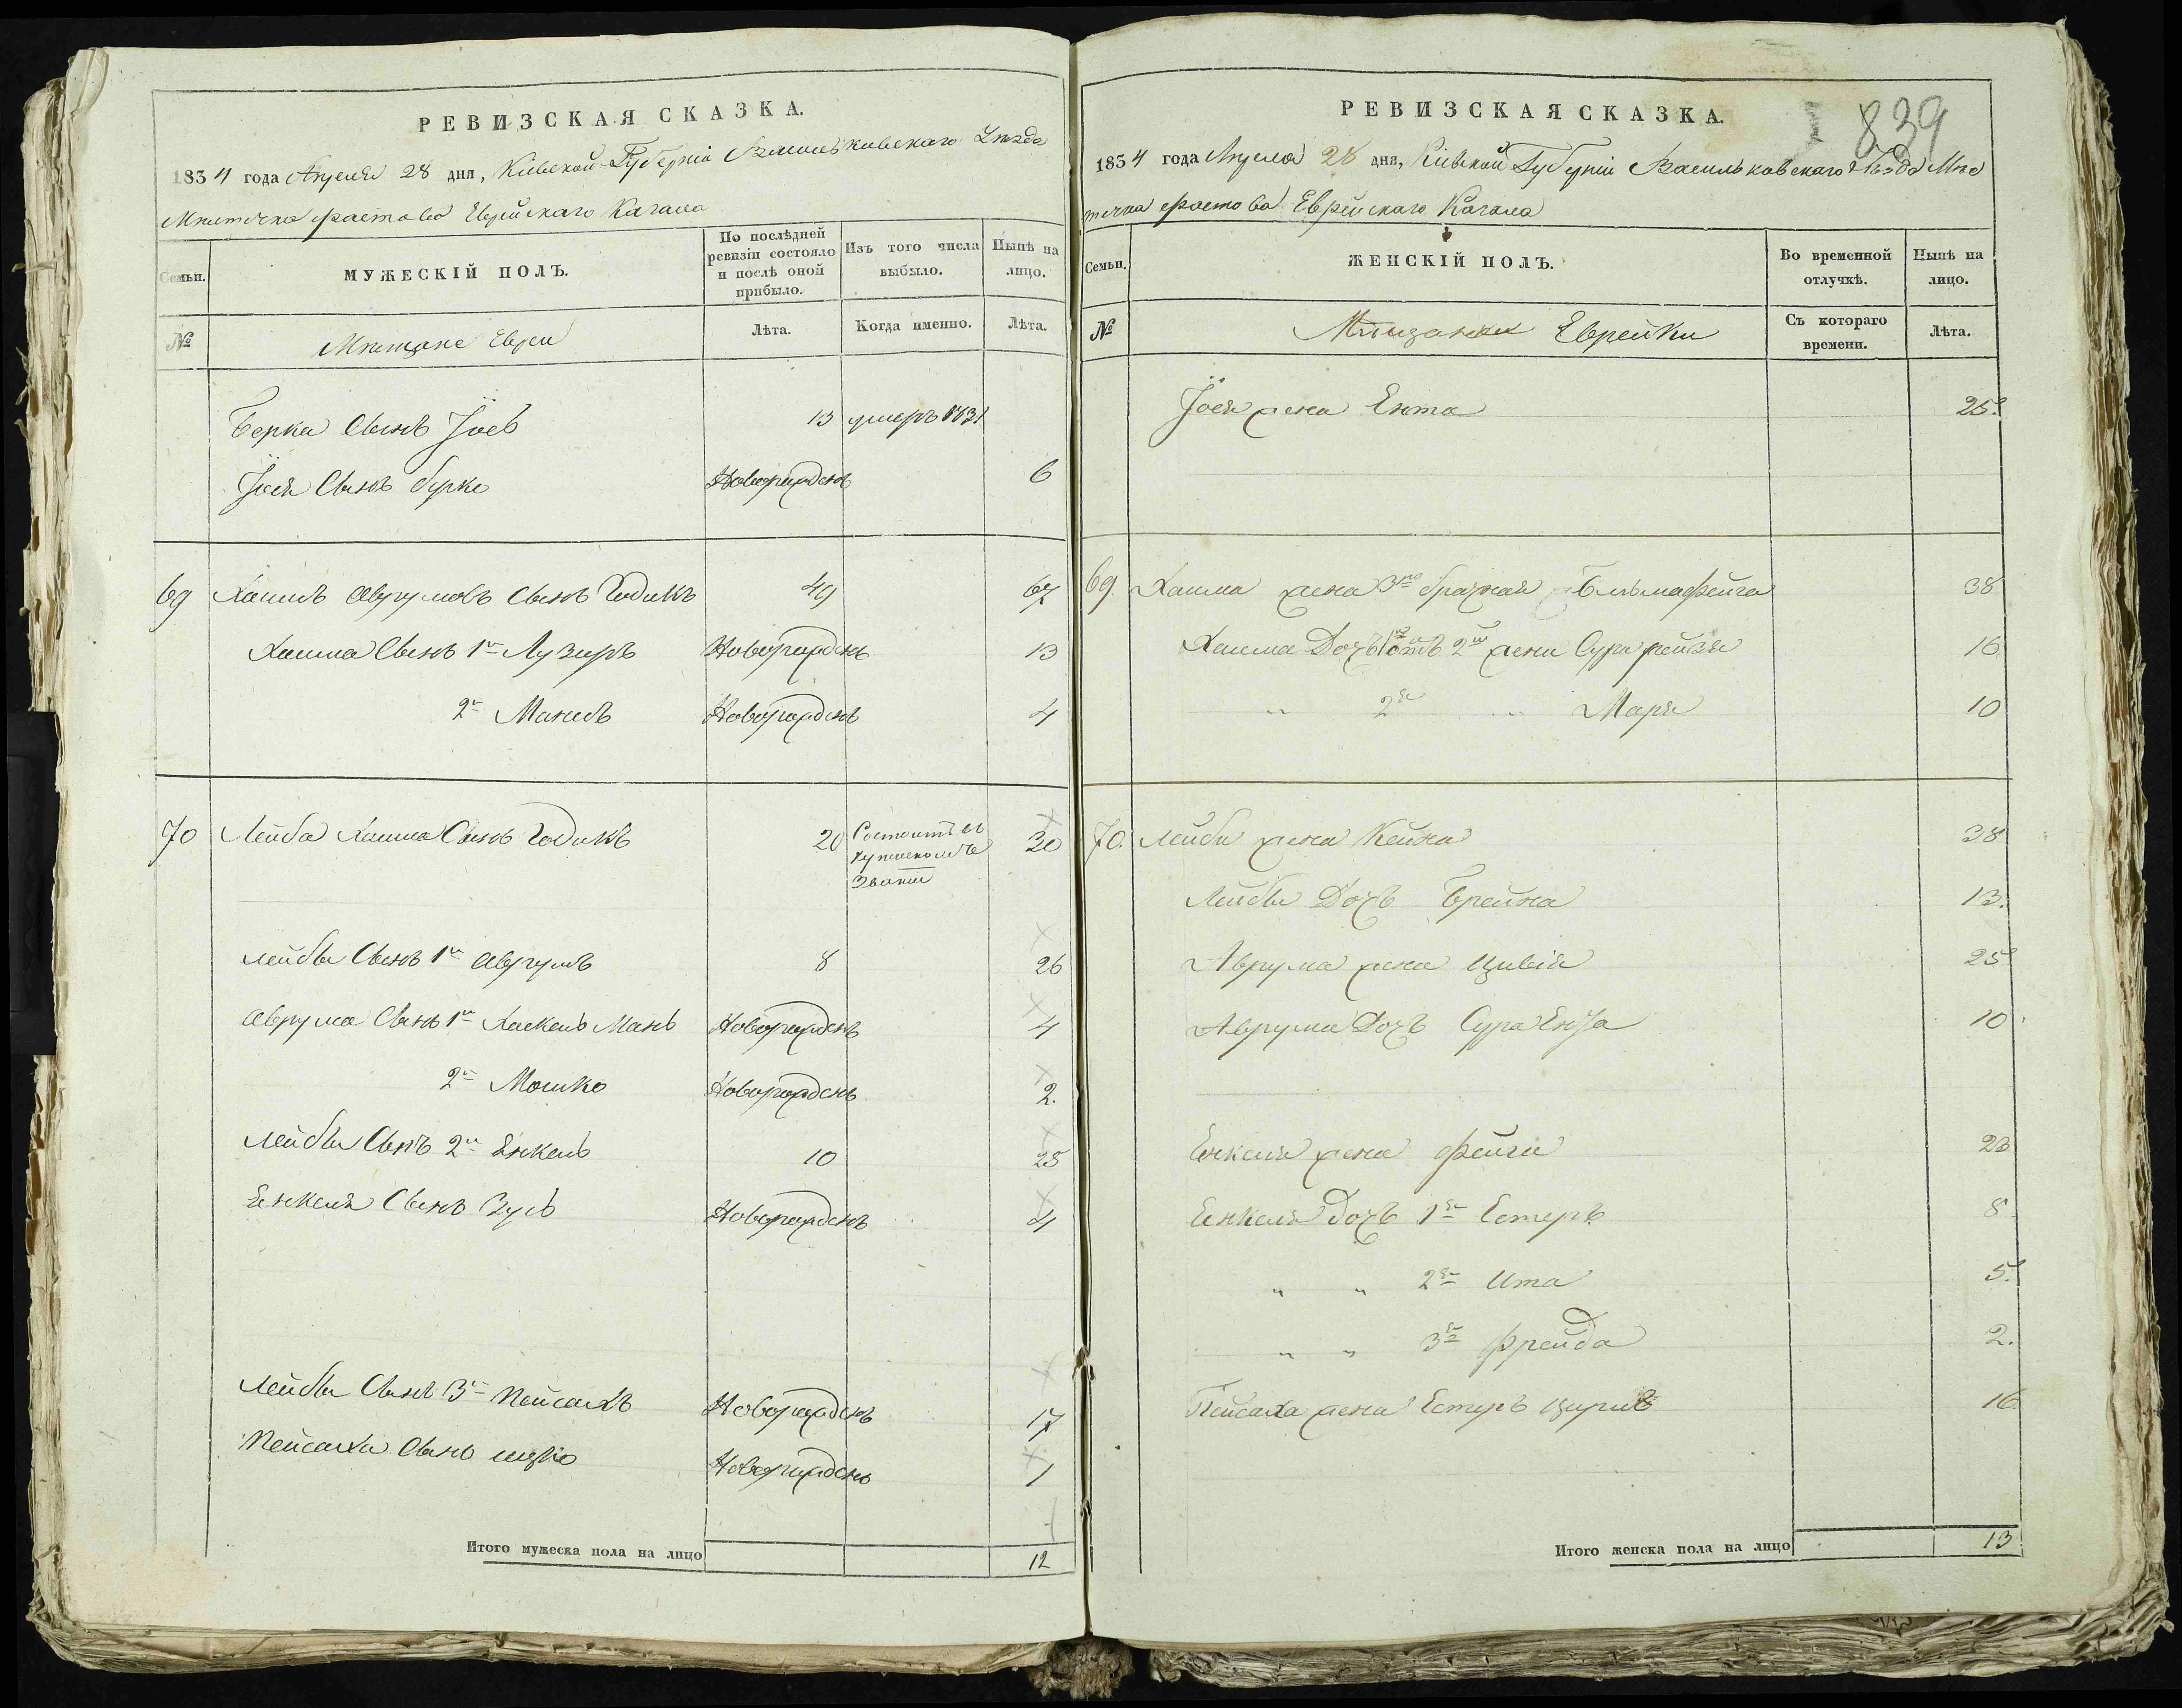 РЕВИЗСКАЯ СКАЗКА.
1834 года Апреля 28 дня, Кіевской Губерніи Васильковскаго Уезда
Мѣстечка Фастова Еврейскаго Кагала
Семьи.
МУЖЕСКІЙ ПОЛЪ.
По послѣдней ревизіи состояло и послѣ оной прибыло.
Изъ того числа выбыло.
Нынѣ на лицо.
№
Мѣщане Евреи
Лѣта.
Когда именно.
Лѣта.
Берка Сынъ Іось 13 умеръ 1831
Іося Сынъ Берко Новорожденъ 6
69 Хаимъ Аврумовъ Сынъ Годикъ 49 67
Хаима Сынъ 1й Лузеръ Новорожденъ 13
2й Манисъ Новорожденъ 4
70 Лейба Хаима Сынъ Годикъ 20 Состоитъ въ купческомъ званіи 30
Лейбы Сынъ 1й Аврумъ 8 26
Аврума Сынъ 1й Хаскель Мань Новорожденъ 4
2й Мошко Новорожденъ 2.
Лейбы Сынъ 2й Янкель 10 25
Енкеля Сынъ Зусь Новорожденъ 4
Лейбы Сынъ 3й Пейсахъ Новорожденъ 17
Пейсаха Сынъ Новорожденъ 1
Итого мужеска пола на лицо 12
839
РЕВИЗСКАЯ СКАЗКА.
1834 года Апреля 28 дня, Кіевской Губерніи Васильковскаго Уѣзда Мѣс
течка Фастова Еврейскаго Кагала
Семьи.
ЖЕНСКІЙ ПОЛЪ.
Во временной отлучкѣ.
Нынѣ на лицо.
№
Мѣщанки Еврейки
Съ котораго времени.
Лѣта.
Іося жена Ента 25.
69. Хаима жена 3го брачная Бльмафейга 38
Хаима Дочь 1я отъ 2й жены Сура рейзя 16
" 2я " Маря 10
70. Лейбы жена Кейна 38
Лейбы Дочь Брейна 13.
Аврума жена Цивія 25
Аврума Дочь Сура 10
Енкеля жена Фейга 23
Енкеля Дочь 1я Естеръ 8
" " 2я Ита 5.
" " 3я Фрейда 2.
Пейсаха жена Естеръ 16.
Итого женска пола на лицо 13